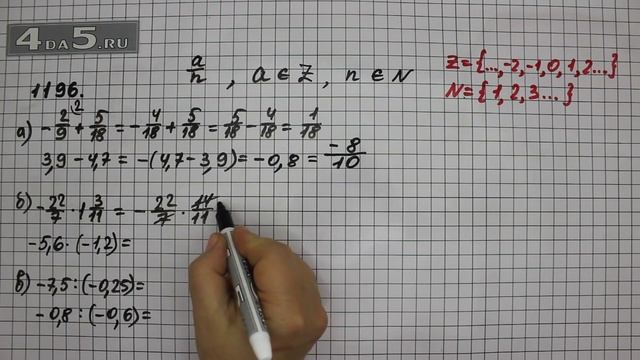 4DA5.RU
1196.
a/n , a ∈ Z , n ∈ N
Z = {..., -2, -1, 0, 1, 2...}
N = {1, 2, 3...}
а) -2/9 + 5/18 = -4/18 + 5/18 = 5/18 - 4/18 = 1/18
3,9 - 4,7 = -(4,7 - 3,9) = -0,8 = -8/10
б) -22/7 · 1 3/11 = -22/7 · 14/11
-5,6 · (-1,2) =
в) -7,5 : (-0,25) =
-0,8 : (-0,6) =